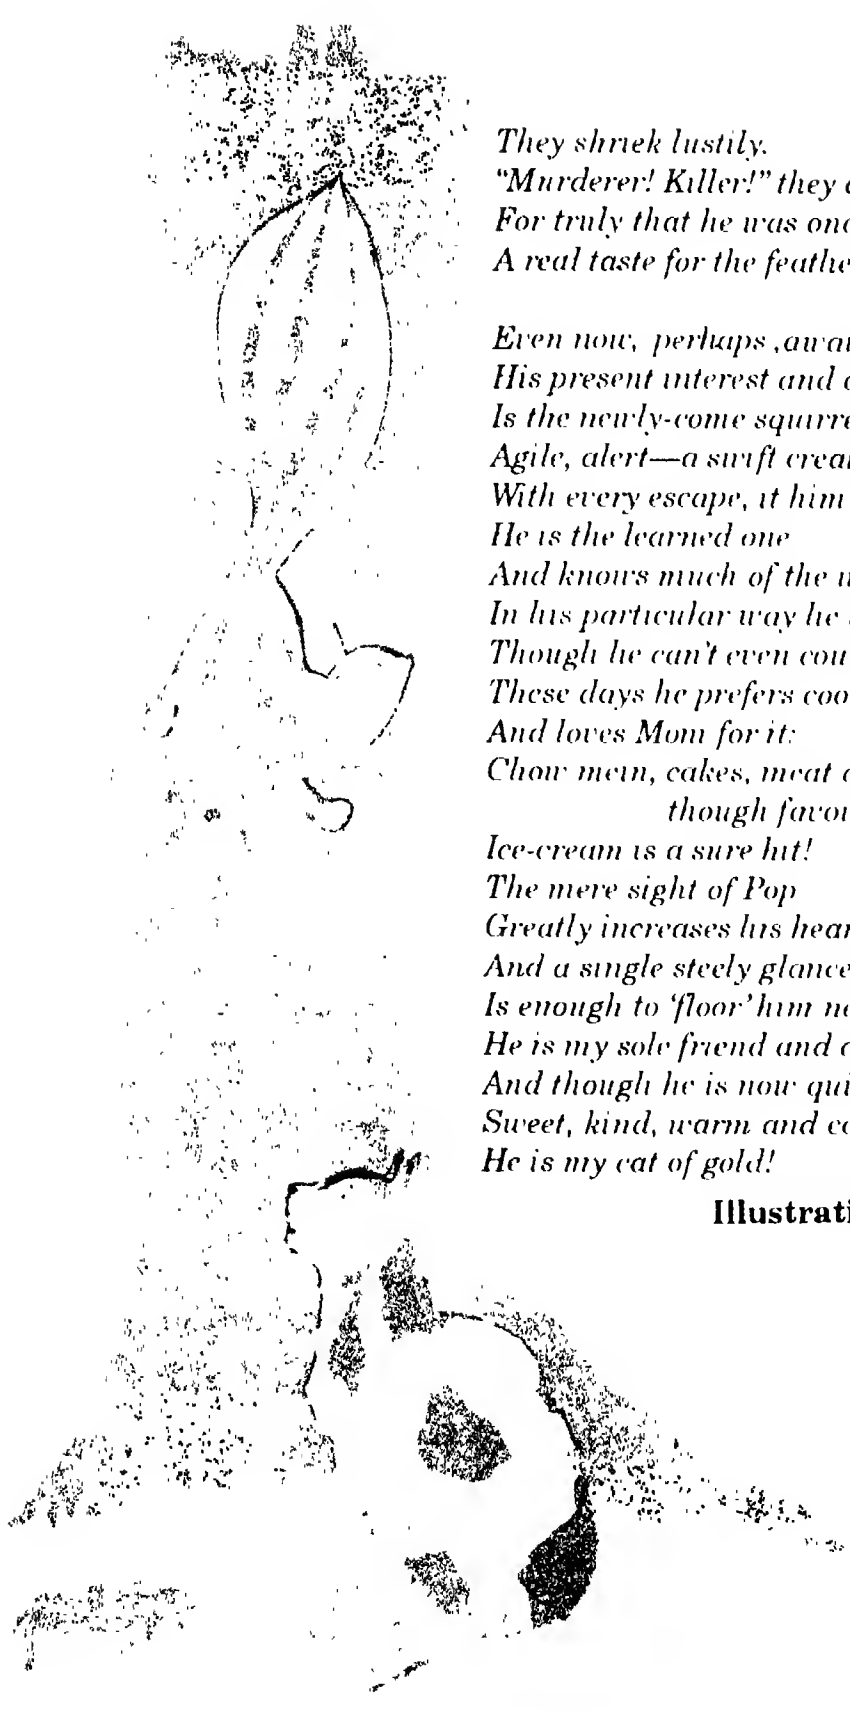 They shriek lustily.
"Murderer! Killer!" they
For truly that he was
A real taste for the
Even now, perhaps ,
His present interest and
Is the newly-come
Agile, alert—a swift
With every escape, it him
He is the learned one
And knows much of the
In his particular way he
Though he can't even
These days he prefers
And loves Mom for it:
Chow mein, cakes, meat
though
Ice-cream is a sure hit!
The mere sight of Pop
Greatly increases his
And a single steely glance
Is enough to 'floor' him
He is my sole friend and
And though he is now
Sweet, kind, warm and
He is my cat of gold!